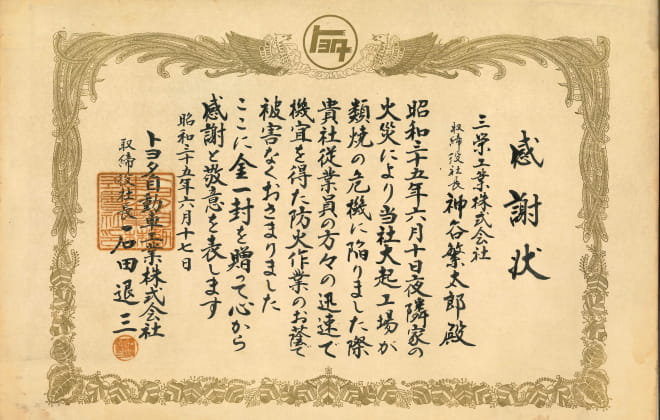 トヨタ
感謝状
三栄工業株式会社
取締役社長 神谷繁太郎殿
昭和三十五年六月十日夜隣家の
火災により当社大起工場が
類焼の危機に陥りました際
貴社従業員の方々の迅速で
機宜を得た防火作業のお蔭で
被害なくおさまりました
ここに金一封を贈って心から
感謝と敬意を表します
昭和三十五年六月十七日
トヨタ自動車工業株式会社
取締役社長 石田退三